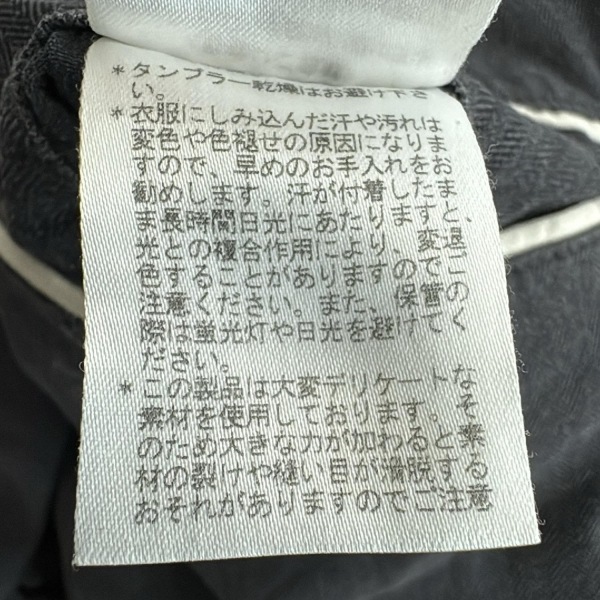 ＊タンブラー乾燥はお避け下さ
い。
＊衣服にしみ込んだ汗や汚れは
変色や色褪せの原因になりま
すので、早めのお手入れをお
勧めします。汗が付着したま
ま長時間日光にあたりますと、
光との複合作用により、変退
色することがありますのでご
注意ください。また、保管の
際は蛍光灯や日光を避けてく
ださい。
＊この製品は大変デリケートな
素材を使用しております。そ
のため大きな力が加わると素
材の裂けや縫い目が滑脱する
おそれがありますのでご注意